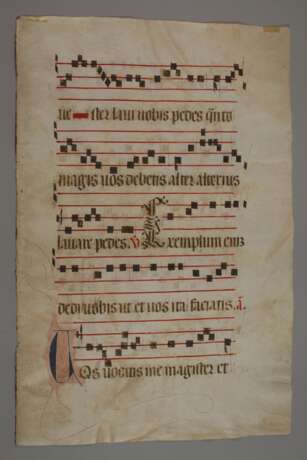 ue ster laui uobis pedes q̄nto
magis uos debetis alter alterius
lauare pedes. V Exemplum enim
dedi uobis ut et uos ita faciatis. a.
Uos uocatis me magister et